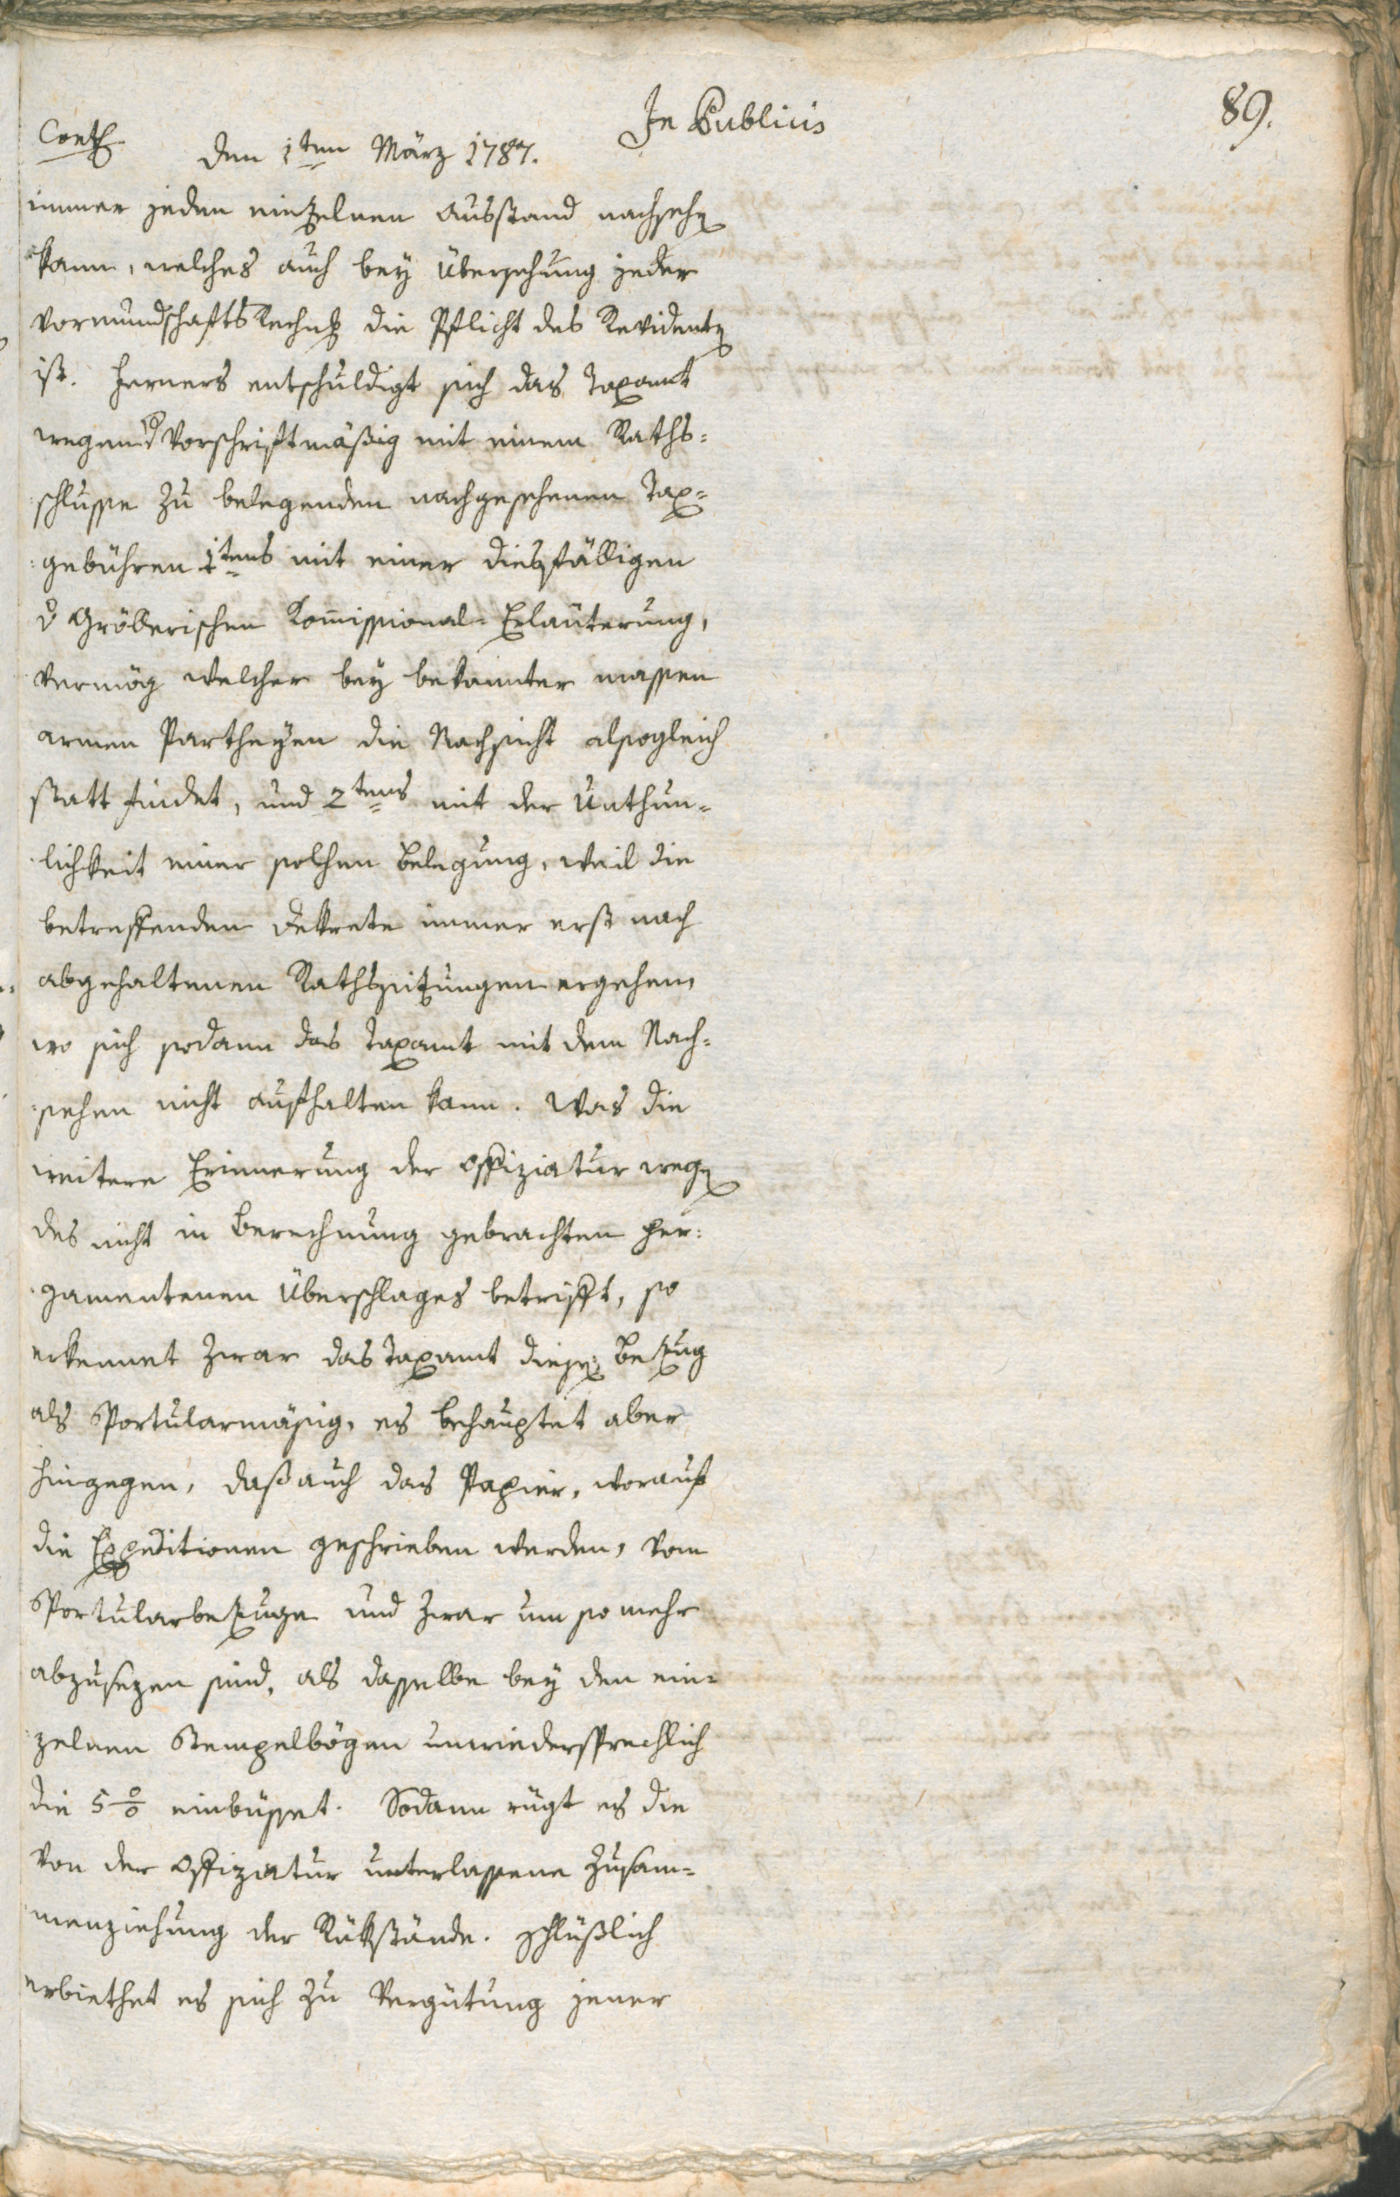 In Publicis
89.
Cont
den 1ten März 1787.
immer jeden einzelnen Ausstand nachsehen
kann, welches auch bey Übersehung jeder
Vormundschafts Rechnung die Pflicht des Revidenten
ist. Ferners entschuldigt sich das Taxamt
wegen d Vorschriftmäßig mit einem Raths-
schlusse zu belegenden nachgesehenen Tax-
gebühren 1tens mit einer diesfälligen
v Gröllerischen Kommissional-Erläuterung,
vermög welcher bey bekannter massen
armen Partheyen die Nachsicht alsogleich
statt findet, und 2tens mit der Unthun-
lichkeit einer solchen Belegung, weil die
betreffenden Dekrete immer erst nach
abgehaltenen Rathssitzungen ergehen,
wo sich sodann das Taxamt mit dem Nach-
sehen nicht aufhalten kann. Was die
weitere Erinnerung der Offiziatur wegen
des nicht in Berechnung gebrachten per-
gamentenen Überschlages betrifft, so
erkennet zwar das Taxamt diesen Bezug
als Sportularmäsig, es behauptet aber
hingegen, daß auch das Papier, worauf
die Expeditionen geschrieben werden, vom
Sportularbezuge und zwar um so mehr
abzusezen sind, als dasselbe bey den ein-
zelnen Stempelbögen unwiedersprechlich
die 5 % einbüsset. Sodann rügt es die
von der Offiziatur unterlassene Zusam-
menziehung der Rükstände. Schlüßlich
erbiethet es sich zu Vergütung jener